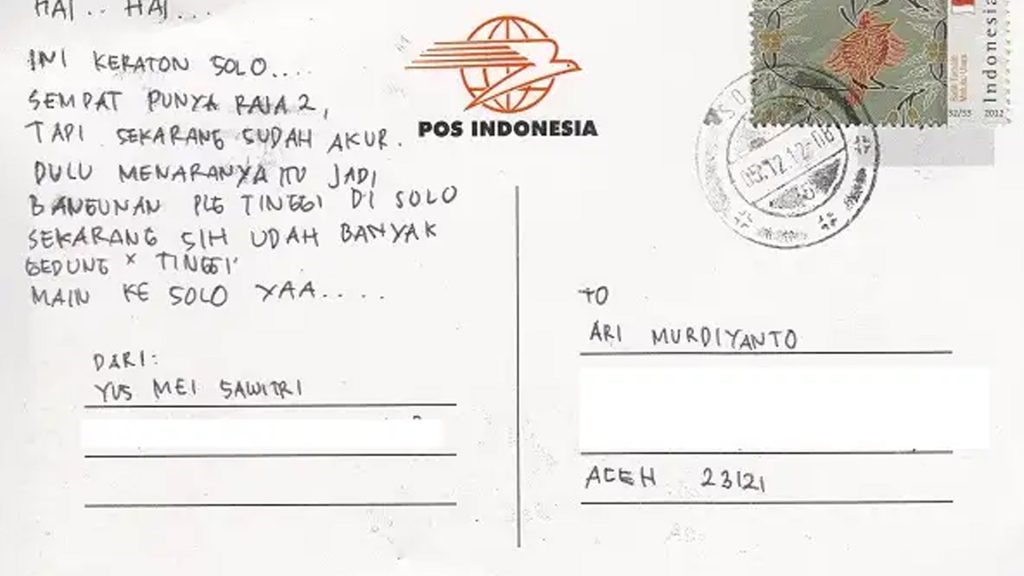 HAI .. HAI ...
INI KERATON SOLO....
SEMPAT PUNYA RAJA 2,
TAPI SEKARANG SUDAH AKUR.
DULU MENARANYA ITU JADI
BANGUNAN PLG TINGGI DI SOLO
SEKARANG SIH UDAH BANYAK
GEDUNG x TINGGI"
MAIN KE SOLO YAA.....
DARI:
YUS MEI SAWITRI
POS INDONESIA
Indonesia
2012
SOLO
05.12.12-08
TO
ARI MURDIYANTO
ACEH 23121